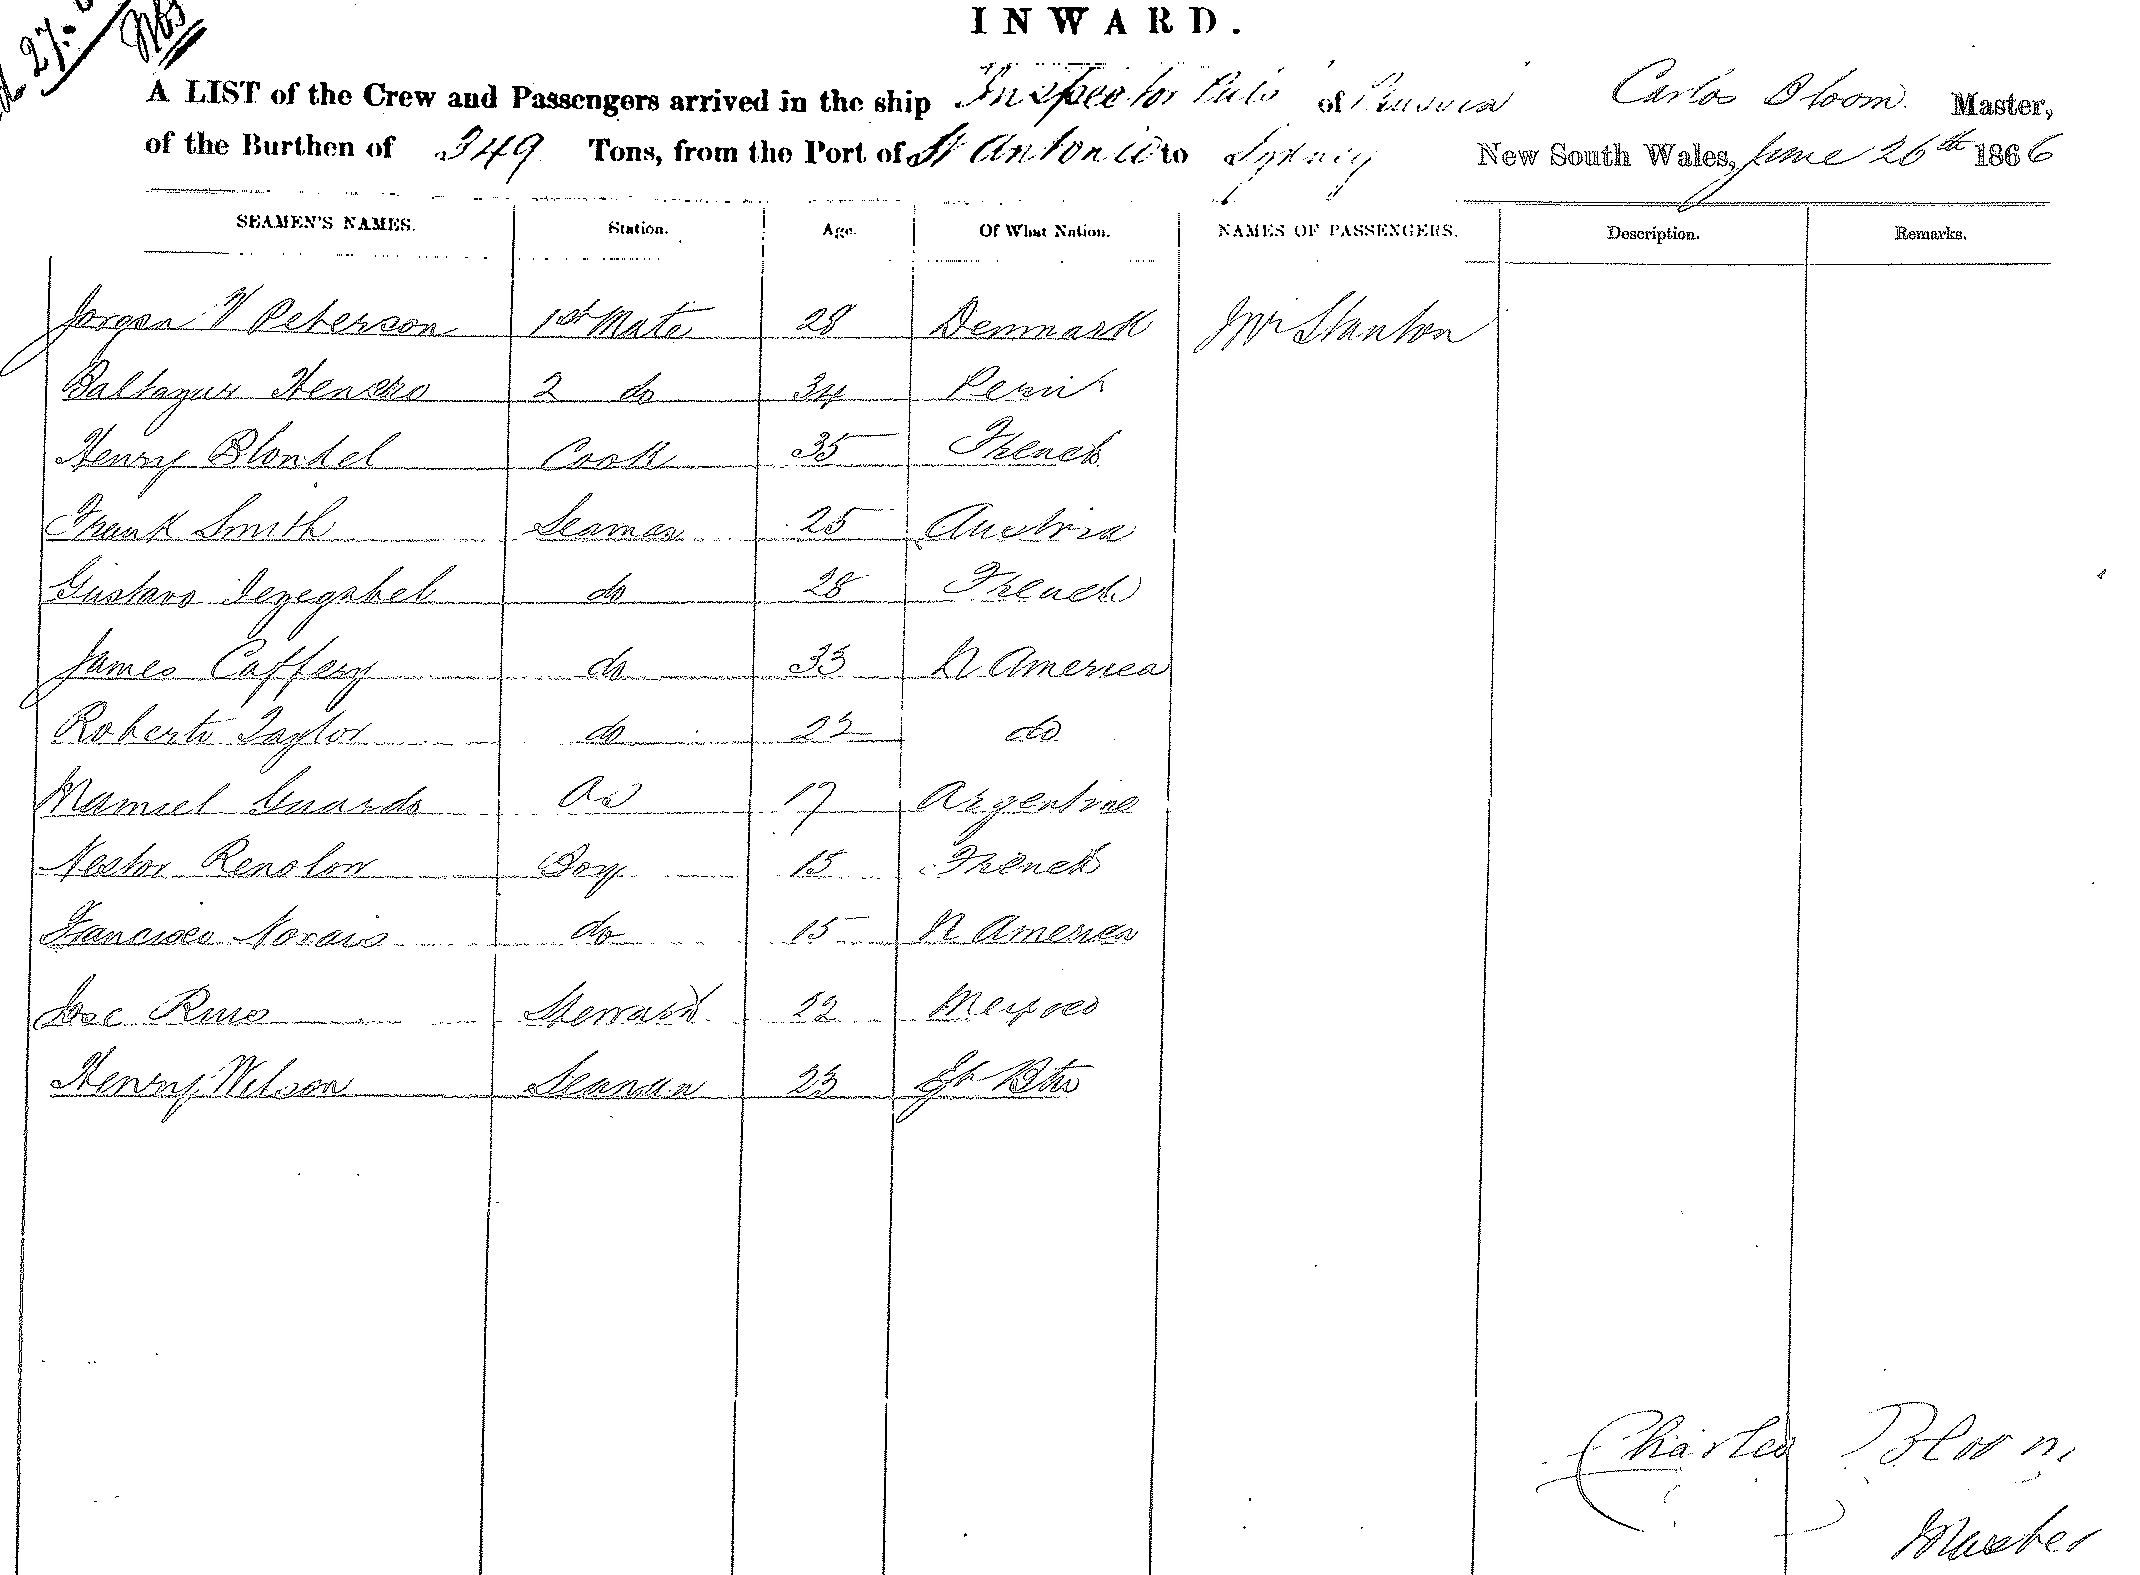 27.
INWARD.
A LIST of the Crew and Passengers arrived in the ship Inspector of Prussia Carlos Bloom. Master,
of the Burthen of 349 Tons, from the Port of St Antonio to Sydney New South Wales, June 26th 1866
SEAMEN'S NAMES. Station. Age. Of What Nation. NAMES OF PASSENGERS. Description. Remarks.
Jorgen V Peterson 1st Mate 28 Denmark Mr Stanton
Baltazar 2 do 34 Peru
Henry Blondel Cook 35 French
Frank Smith Seaman 25 Austria
Gustavo do 28 French
James Caffery do 33 N America
Roberto Taylor do 22 do
Manuel Guardo 17 Argentine
Nestor Renolon Boy 15 French
Francisco Norais do 15 N America
Jose Ruis Steward 22 Mexico
Henry Wilson Seaman 23 Gt Btn
Charles Bloom.
Master